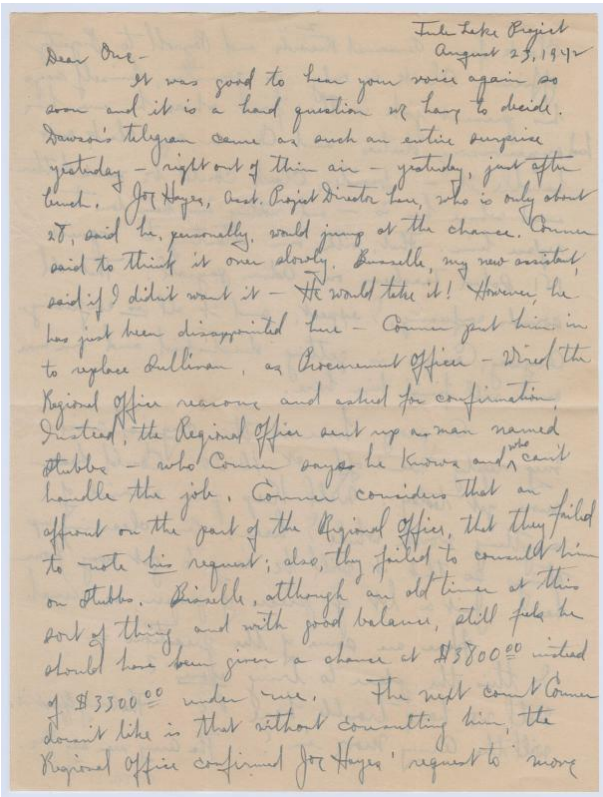 Tule Lake Project
August 23, 1942
Dear One-
It was good to hear your voice again so
soon and it is a hard question we have to decide.
Dawson's telegram came as such an entire surprise
yesterday - right out of thin air - yesterday, just after
lunch. Joe Hayes, Asst. Project Director here, who is only about
28, said he, personally, would jump at the chance. Conner
said to think it over slowly. Bisselle, my new assistant,
said if I didn't want it - He would take it! However, he
has just been disappointed here - Conner put him in
to replace Sullivan, as Procurement Officer - Wired the
Regional Office reasons and asked for confirmation.
Instead, the Regional Office sent up a man named
Stubbs - who Conner says he knows and who can't
handle the job. Conner considers that an
affront on the part of the Regional Office, that they failed
to note his request; also, they failed to consult him
on Stubbs. Bisselle, although an old timer at this
sort of thing and with good balance, still feels he
should have been given a chance at $3800.00 instead
of $3300.00 under me. The next count Conner
doesn't like is that without consulting him, the
Regional Office confirmed Joe Hayes' request to move